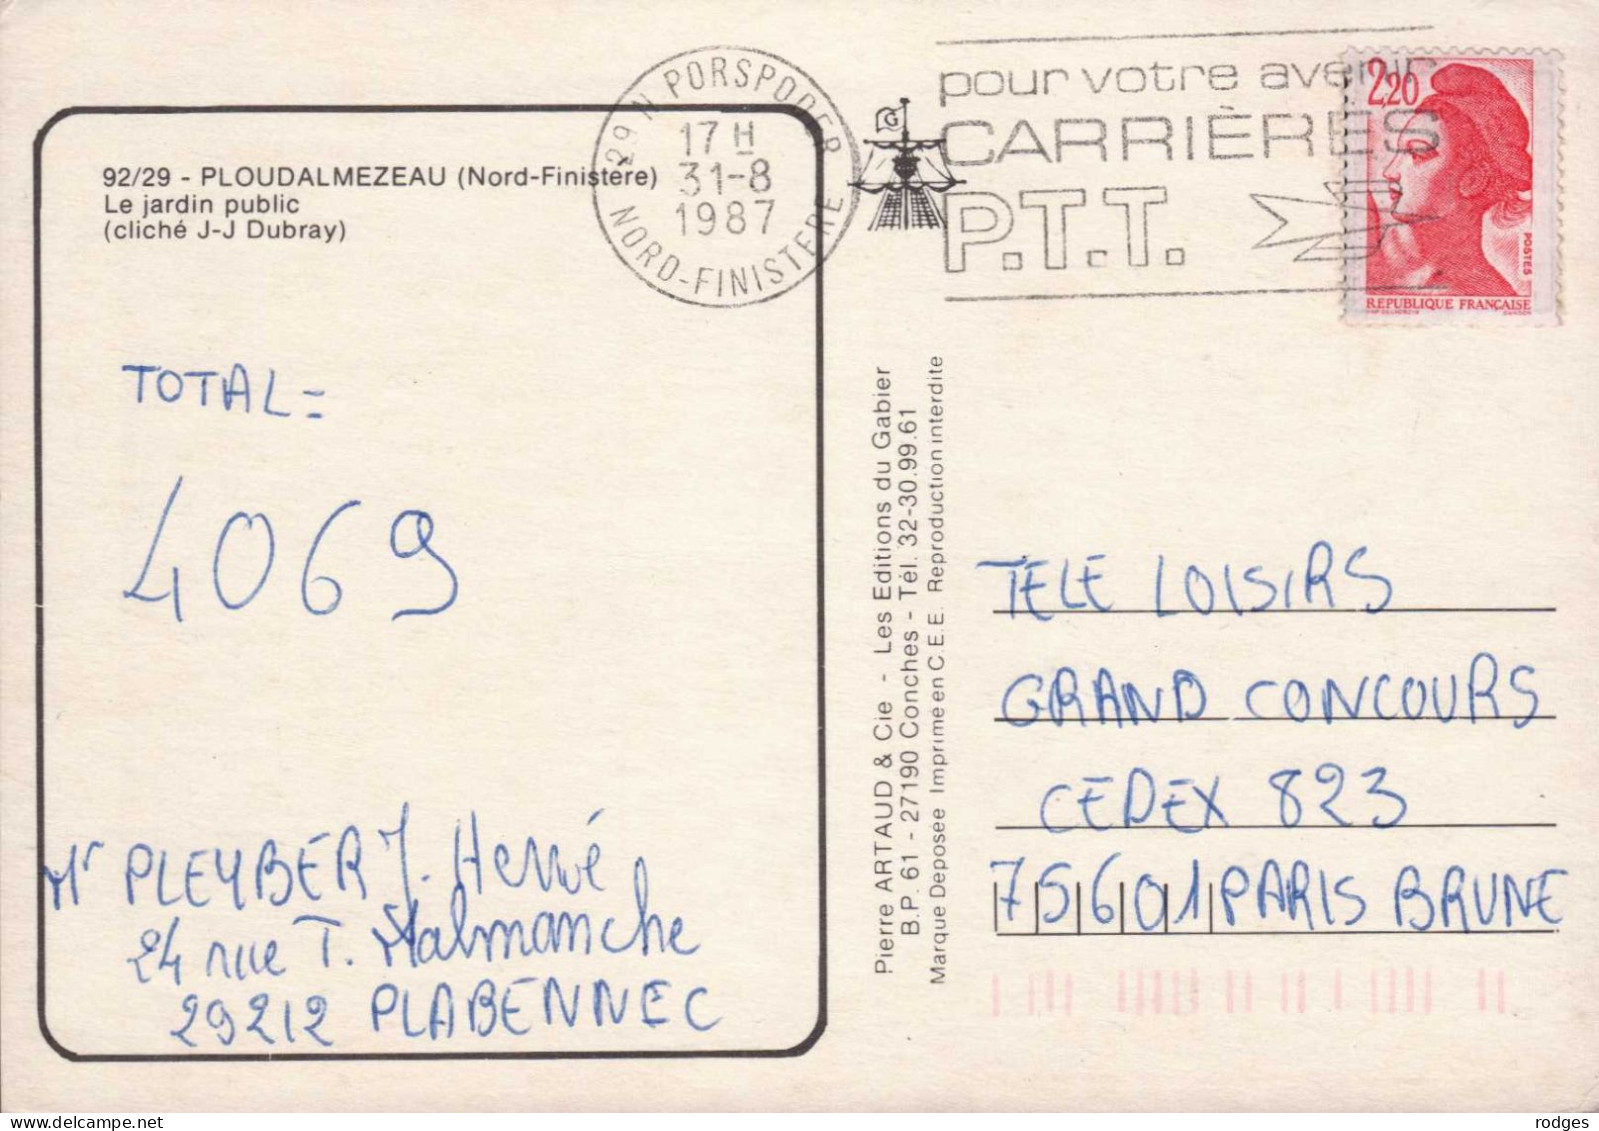 92/29 - PLOUDALMEZEAU (Nord-Finistère)
Le jardin public
(cliché J-J Dubray)
29 N PORSPODER
17 H
31-8
1987
NORD-FINISTERE
G
pour votre avenir
CARRIÈRES
P.T.T.
2,20
POSTES
REPUBLIQUE FRANÇAISE
TOTAL =
4069
Mr PLEYBER J. Hervé
24 rue T. Malmanche
29212 PLABENNEC
Pierre ARTAUD & Cie - Les Editions du Gabier
B.P. 61 - 27190 Conches - Tél. 32-30.99.61
Marque Deposée Imprimé en C.E.E. Reproduction interdite
TELE LOISIRS
GRAND CONCOURS
CEDEX 823
75601 PARIS BRUNE
rodges